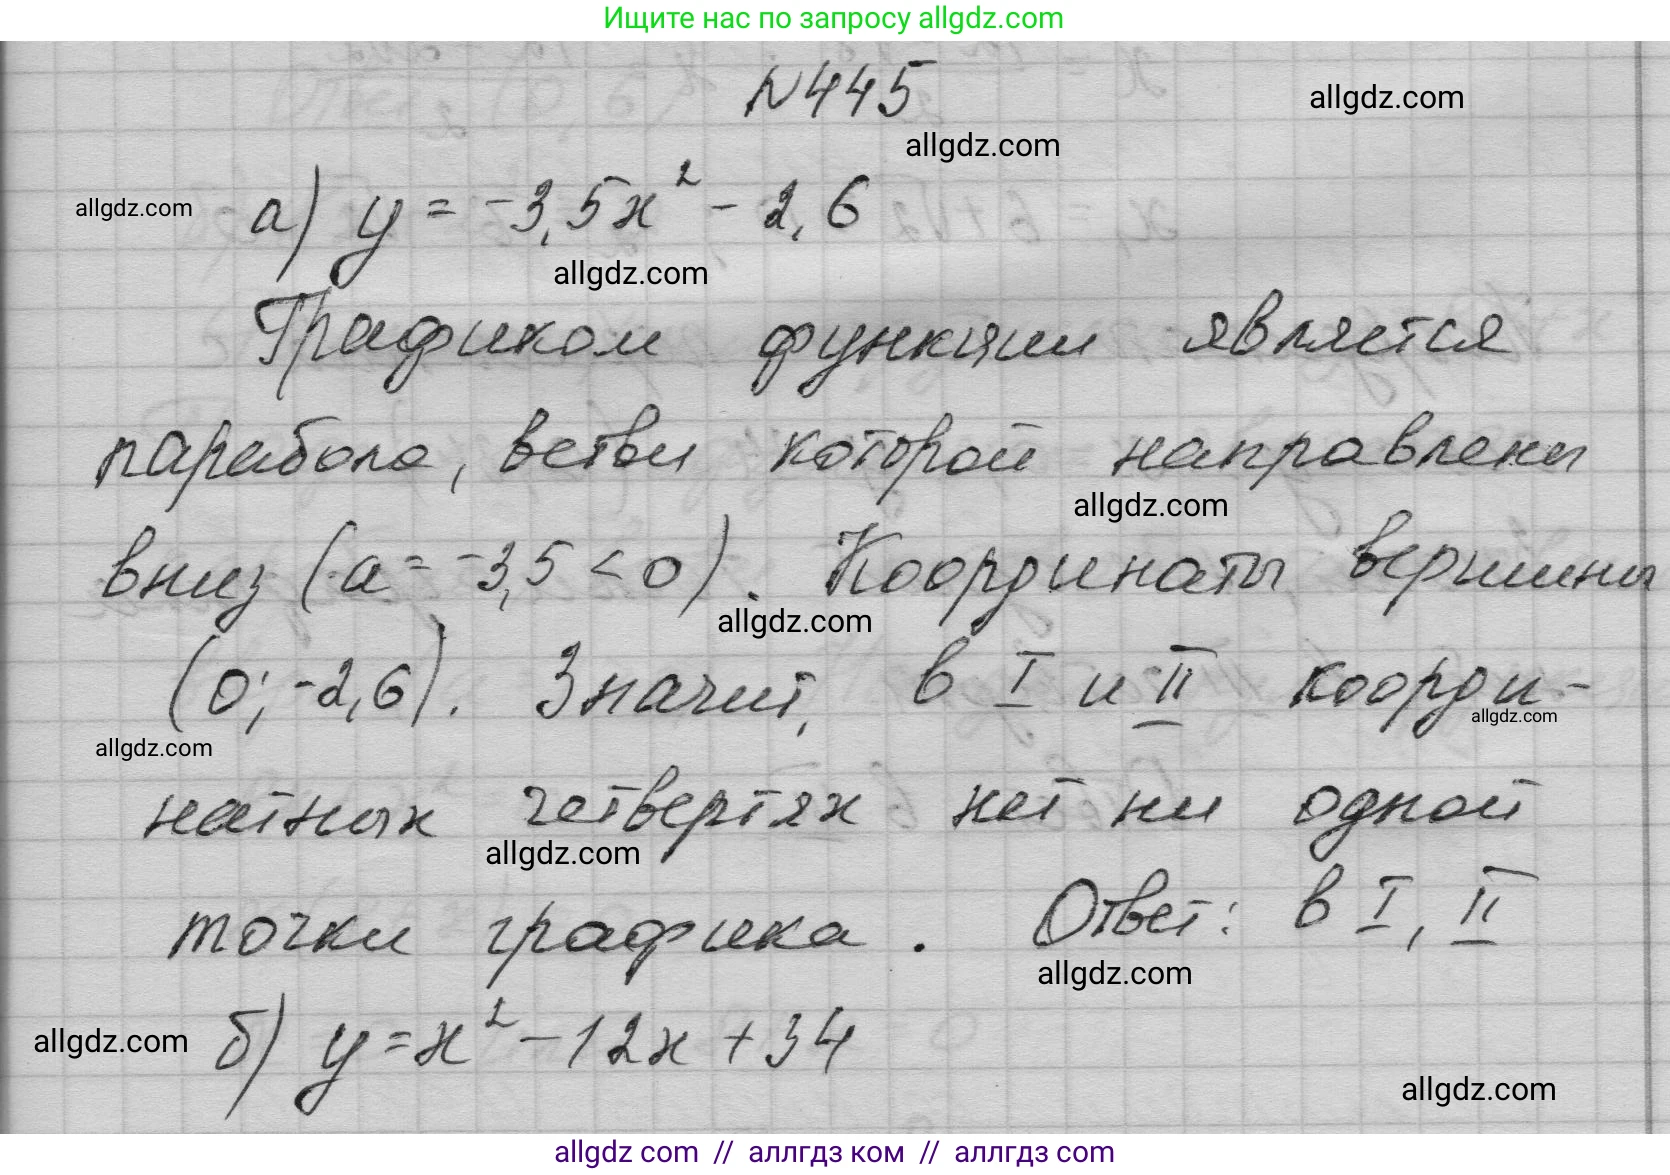 Ищите нас по запросу allgdz.com
N445
allgdz.com
allgdz.com
а) y = -3,5x² - 2,6
allgdz.com
allgdz.com
Графиком функции является
парабола, ветви которой направлены
allgdz.com
вниз (a = -3,5 < 0). Координаты вершины
allgdz.com
(0; -2,6). Значит, в I и II коорди-
allgdz.com
allgdz.com
натных четвертях нет ни одной
allgdz.com
точки графика. Ответ: в I, II
allgdz.com
б) y = x² - 12x + 34
allgdz.com
allgdz.com
allgdz com // аллгдз ком // allgdz com